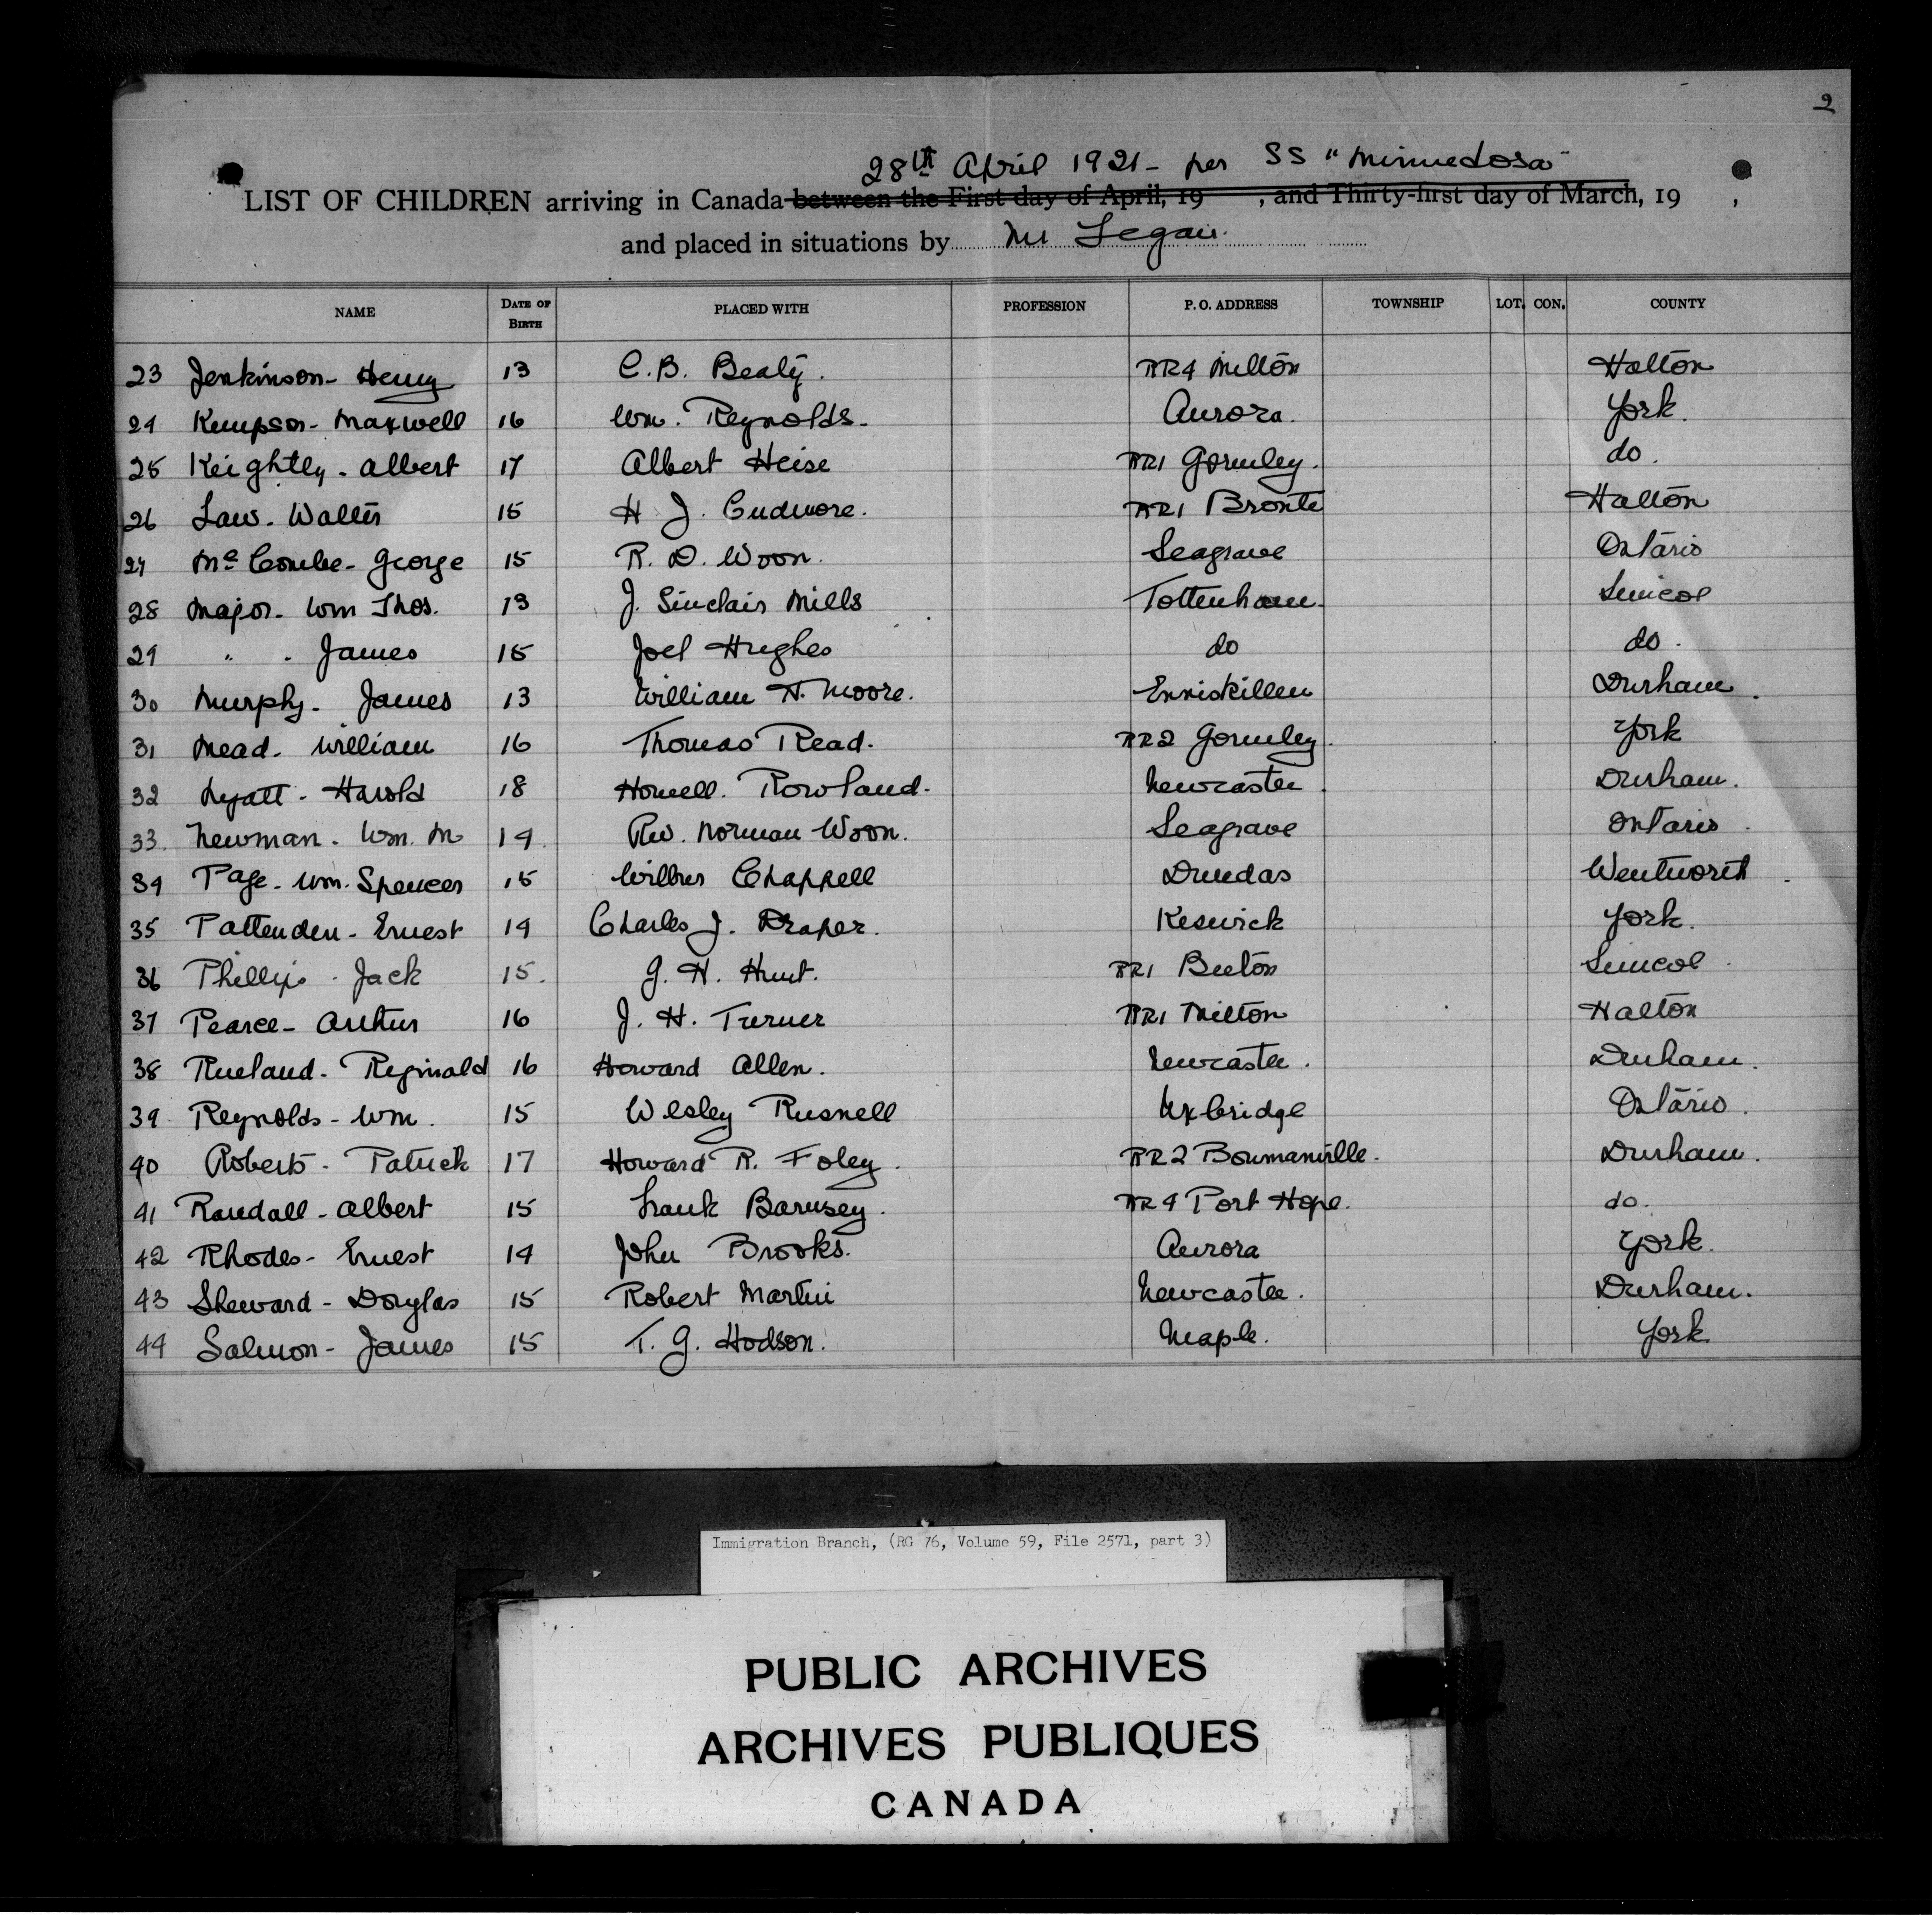 2
28th April 1921 - per SS "Minnedosa"
LIST OF CHILDREN arriving in Canada between the First day of April, 19 , and Thirty-first day of March, 19 ,
and placed in situations by Mr
NAME DATE OF BIRTH PLACED WITH PROFESSION P. O. ADDRESS TOWNSHIP LOT. CON. COUNTY
23 Jenkinson - Henry 13 C. B. Beaty. RR4 Milton Halton
24 Kempson - Maxwell 16 Wm. Reynolds. Aurora. York.
25 Keightly - Albert 17 Albert Heise RR1 Gormley. do.
26 Law - Walter 15 H J. Cudmore. RR1 Bronte Halton
27 McCombe - George 15 R. D. Woon. Seagrave Ontario
28 Major - Wm Thos. 13 J. Sinclair Mills Tottenham. Simcoe
29 " - James 15 Joel Hughes do do.
30 Murphy - James 13 William H. Moore. Enniskillen Durham.
31 Mead - William 16 Thomas Read. RR2 Gormley. York
32 Harold 18 Howell Rowland. Newcastle. Durham.
33. Newman - Wm. M 14. Rev. Norman Woon. Seagrave Ontario.
34 Page - Wm. Spencer 15 Wilbur Chappell Dundas Wentworth
35 Pattenden - Ernest 14 Charles J. Draper. Keswick York.
36 Phillips - Jack 15. G. H. Hunt. RR1 Beeton Simcoe
37 Pearce - Arthur 16 J. H. Turner RR1 Milton Halton
38 Rueland - Reginald 16 Howard Allen. Newcastle. Durham.
39 Reynolds - Wm. 15 Wesley Rusnell Uxbridge Ontario.
40 Roberts - Patrick 17 Howard R. Foley. RR2 Bowmanville. Durham.
41 Randall - Albert 15 Frank RR4 Port Hope. do.
42 Rhodes - Ernest 14 John Brooks. Aurora York.
43 Sheward - Douglas 15 Robert Martin Newcastle. Durham.
44 Salmon - James 15 T. G. Hodson. Maple. York
Immigration Branch, (RG 76, Volume 59, File 2571, part 3)
PUBLIC ARCHIVES
ARCHIVES PUBLIQUES
CANADA